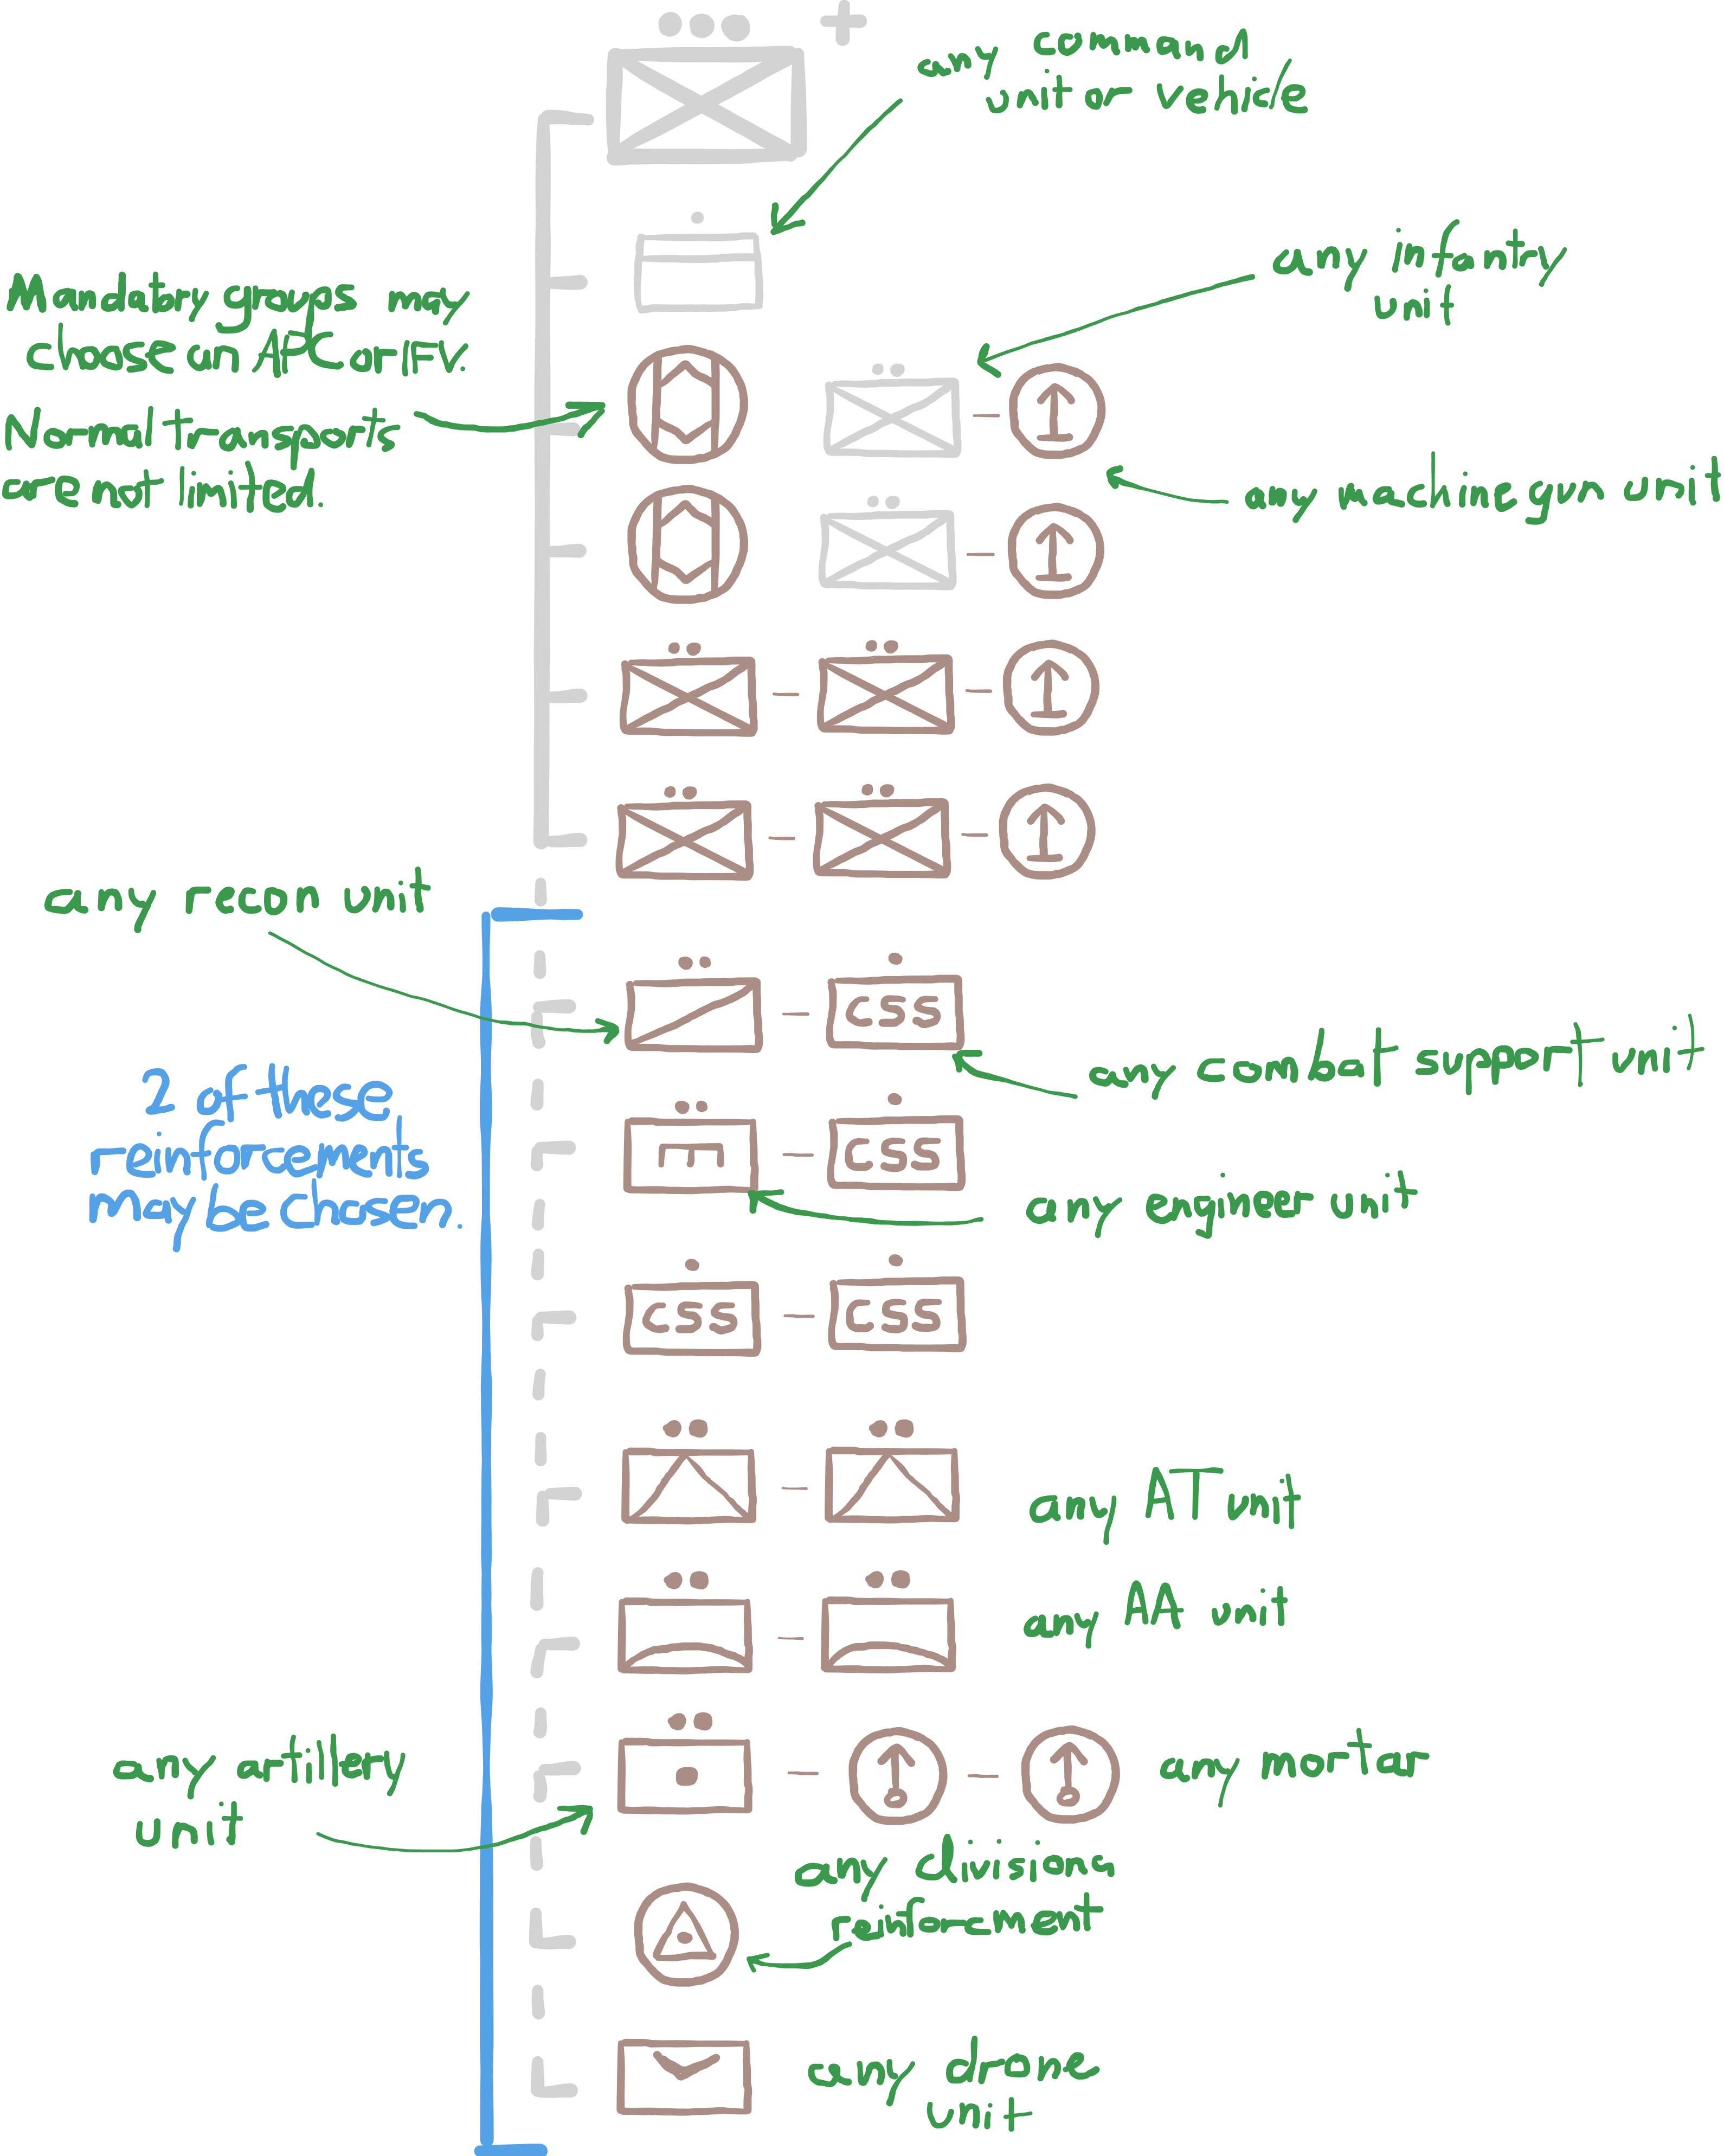 any command
unit or vehicle
any infantry
unit
Mandatory groups may
choose an APC or IFV.
Normal transports
are not limited.
any machine gun unit
any recon unit
CSS
any combat support unit
2 of these
reinforcements
may be chosen.
CSS
any engineer unit
CSS
CSS
any AT unit
any AA unit
any artillery
unit
any mortar
any divisiona
reinforcment
any drone
unit